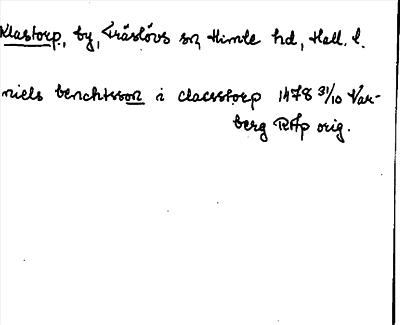 Klastorp, by, Träslövs sn, Himle hd, Hall. l.
niels benchtsson i clacestorp 1478 31/10 Var-
berg RAp orig.